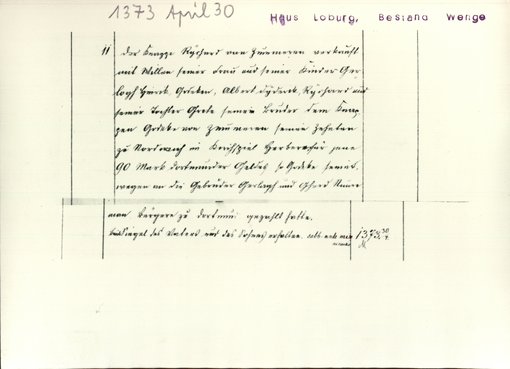 1373 April 30
Haus Loburg, Bestand Wenge
11
Der Knappe Rychard van Zuumeren verkauft
mit Willen seiner Frau und seiner Kinder Ger-
logh, Godeken, Albert, Dyderik, Rychard und
seiner Tochter Grete seinem Bruder dem Knap-
pen Godeke von Zuumeren seinen Zehnten
zu Nordwich im Kirchspiel für jene
90 Mark dortmunder Geldes so Godeke seinet-
wegen an die Gebrüder Gerlagh und
man Bürgere zu Dortmund gezahlt hatte.
Siegel des Vaters und des Sohnes erhalten.
1373 30/4